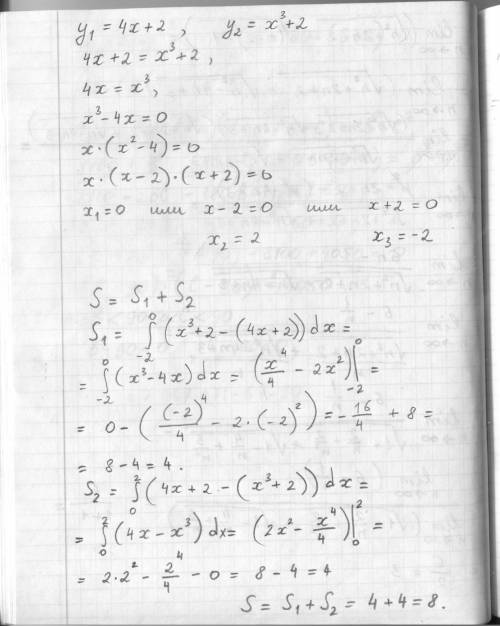 y₁ = 4x + 2, y₂ = x³ + 2
4x + 2 = x³ + 2,
4x = x³,
x³ - 4x = 0
x · (x² - 4) = 0
x · (x - 2) · (x + 2) = 0
x₁ = 0 или x - 2 = 0 или x + 2 = 0
x₂ = 2 x₃ = -2
S = S₁ + S₂
S₁ = ∫₋₂⁰ (x³ + 2 - (4x + 2)) dx =
= ∫₋₂⁰ (x³ - 4x) dx = (x⁴/4 - 2x²)|₋₂⁰ =
= 0 - ((-2)⁴/4 - 2 · (-2)²) = -16/4 + 8 =
= 8 - 4 = 4.
S₂ = ∫₀² (4x + 2 - (x³ + 2)) dx =
= ∫₀² (4x - x³) dx = (2x² - x⁴/4)|₀² =
= 2 · 2² - 2⁴/4 - 0 = 8 - 4 = 4
S = S₁ + S₂ = 4 + 4 = 8.